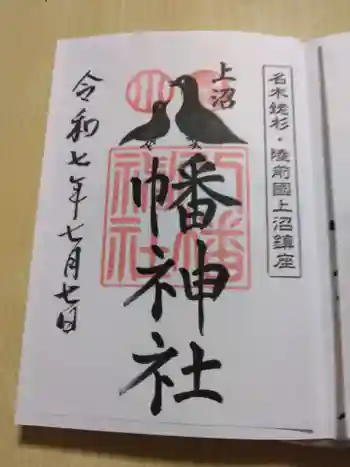 名木杉・陸前國上沼鎮座
上沼
幡神社
八幡
神社
令和七年七月七日